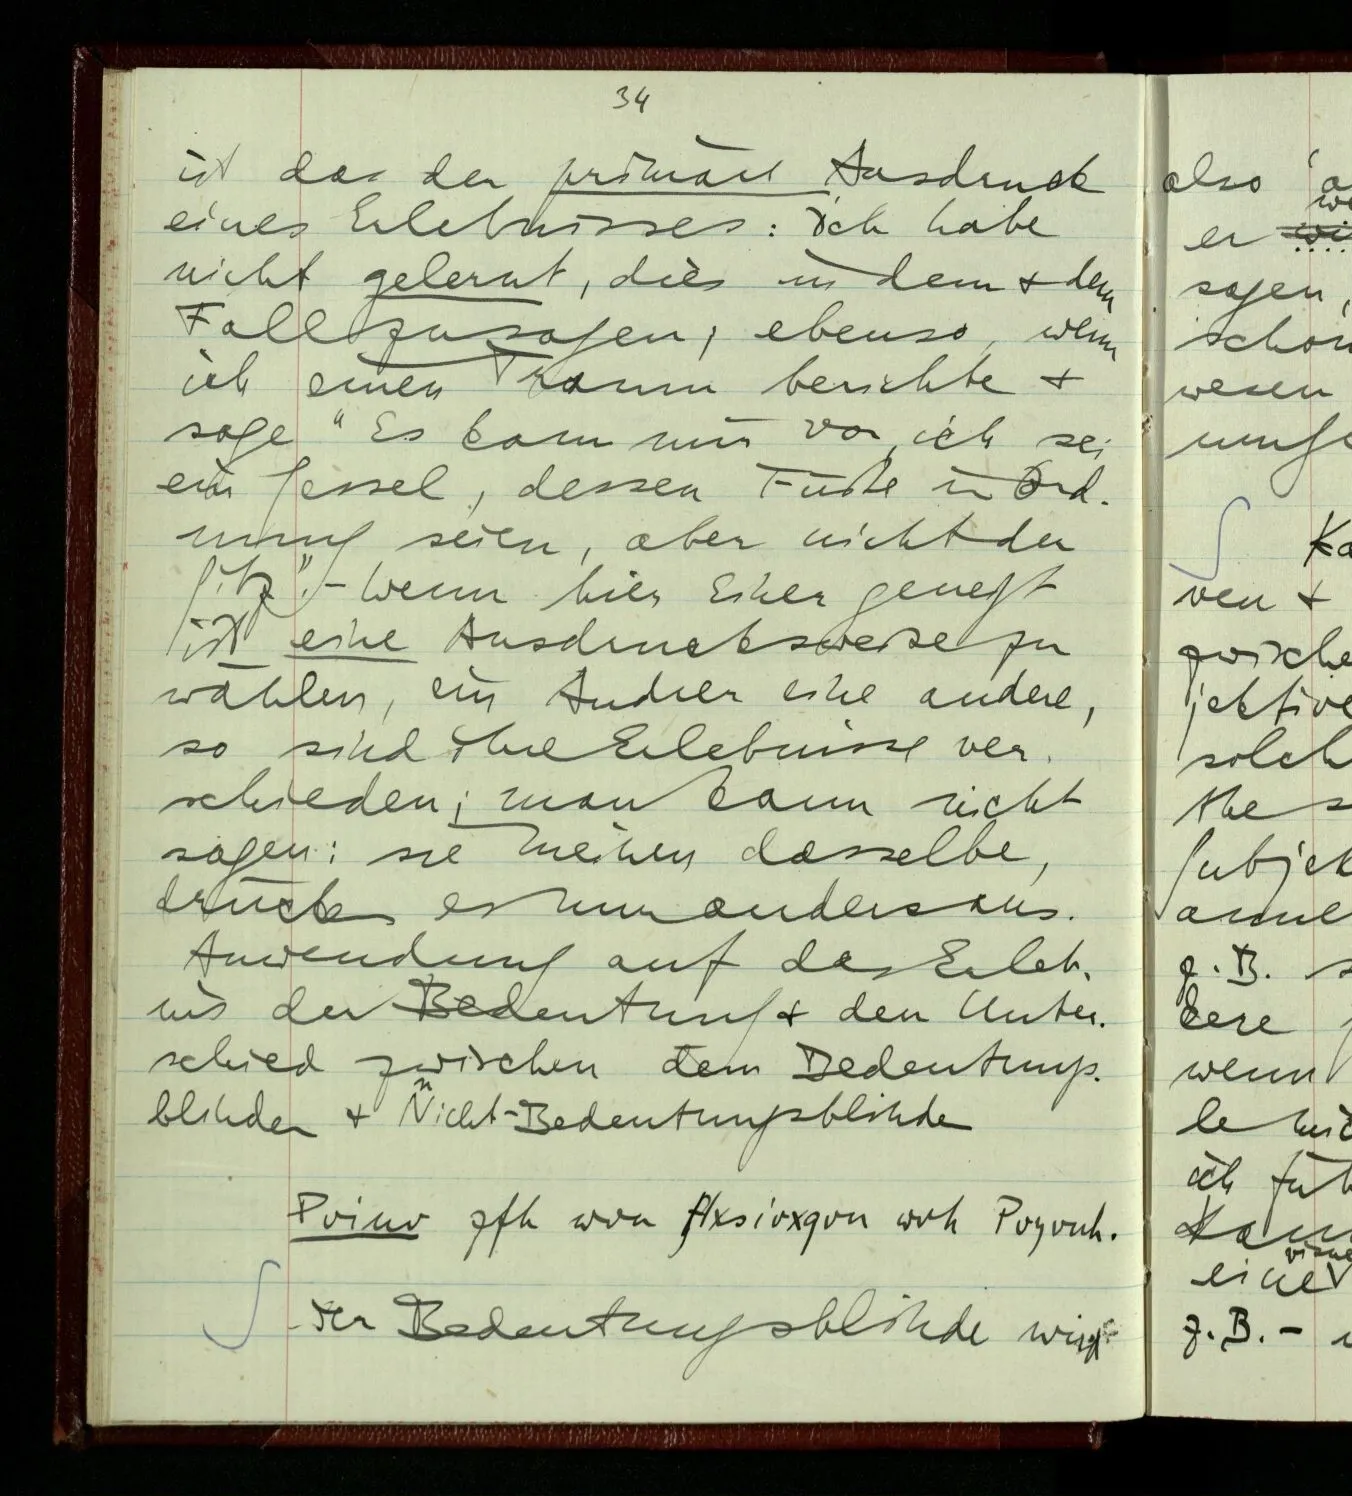 34
ist das der primäre Ausdruck
eines Erlebnisses: Ich habe
nicht gelernt, dies in dem & dem
Fall zu sagen; ebenso, wenn
ich einen Traum berichte &
sage "Es kam mir vor, ich sei
ein Sessel, dessen Füße in Ord-
nung seien, aber nicht der
Sitz". – Wenn hier Einer geneigt
ist eine Ausdrucksweise zu
wählen, ein Andrer eine andere,
so sind ihre Erlebnisse ver-
schieden; man kann nicht
sagen: sie meinen dasselbe,
drücken es nur anders aus.
Anwendung auf das Erleb-
nis der Bedeutung & den Unter-
schied zwischen dem Bedeutungs-
blinden & Nicht-Bedeutungsblinden
zfh won woh
Der Bedeutungsblinde wird
also
er
sagen,
schon
wesen
&
z.B.
wenn
ich
eine
z.B. –